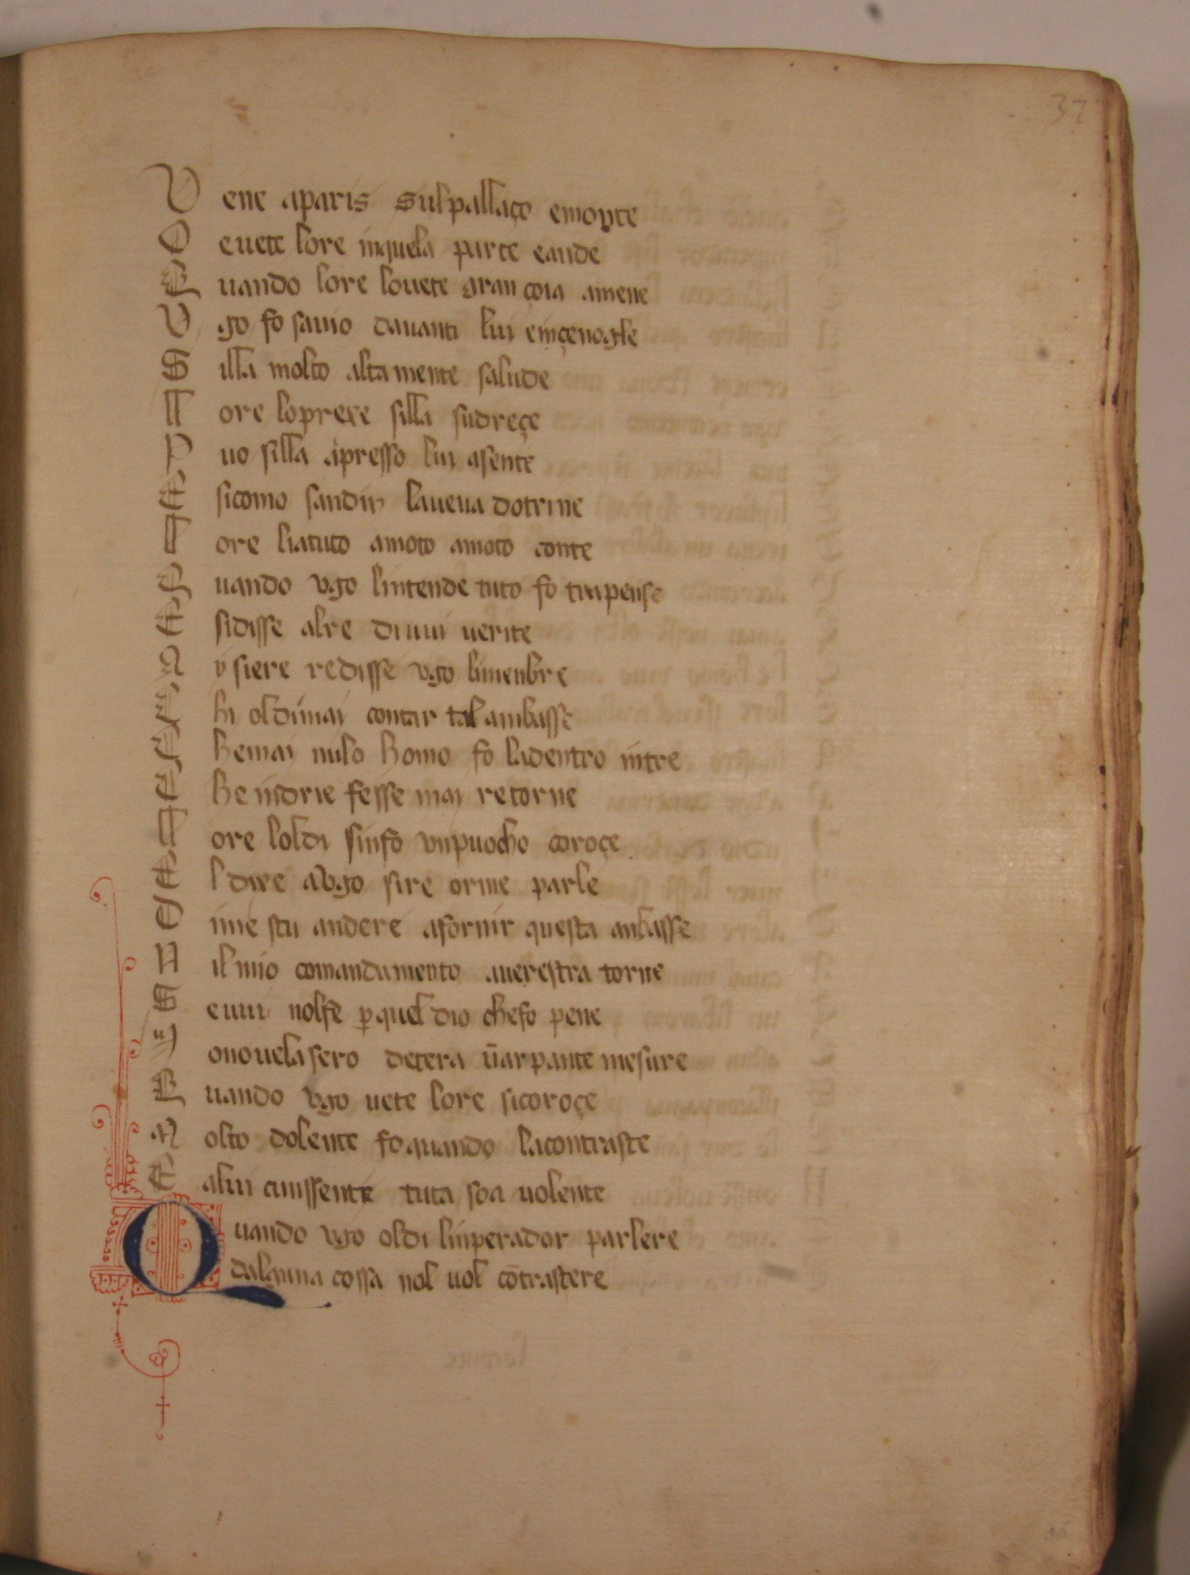 37
V ene aparis sulpallaço emonte
O euete lore inquela parte eande
Q uando lore louete gran çoia amene
V go fo sauio dauanti lui einçenogle
S illa molto altamente salude
L ore loprexe silla sudreçe
P uo silla apresso lui asente
E sicomo sandin laueua dotrine
L ore liatuto amoto amoto conte
Q uando vgo lintende tuto fo trapense
E sidisse alre diuui uerite
A y siere redisse vgo linenbre
C hi oldimai contar tal ambasse
C hemai nulo homo fo ladentro intre
C he indrie fesse mai retorne
L ore loldi sinfo vnpuocho coroçe
E l dixe aVgo sire orme parle
O ime stu andere afornir questa anbasse
N il mio comandamento auerestra torne
S euui nolfe p̱quel dio chefo pene
I onouelasero detera ūarpante mesure
Q uando vgo uete lore sicoroçe
M olto dolente fo quando lacontraste
E alui cunssente tuta soa uolente
Q uando vgo oldi linperador parlere
dalguna cossa nol uol cōtrastere